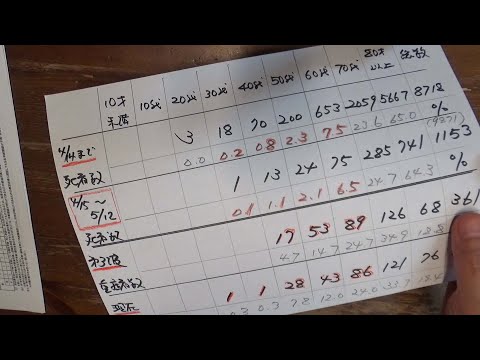 10才未満 10代 20代 30代 40代 50代 60代 70代 80才以上 総数
4/14まで 3 18 70 200 653 2059 5667 8718
死者数 0.0 0.2 0.8 2.3 7.5 23.6 65.0 % (9871)
4/15〜5/12 1 13 24 75 285 741 1153
死者数 0.1 1.1 2.1 6.5 24.7 64.3 %
17 53 89 126 68 361
4.7 14.7 24.7 34.9 12.8
重症者数 1 1 28 43 86 121 76
現在 0.3 0.3 7.8 12.0 24.0 33.7